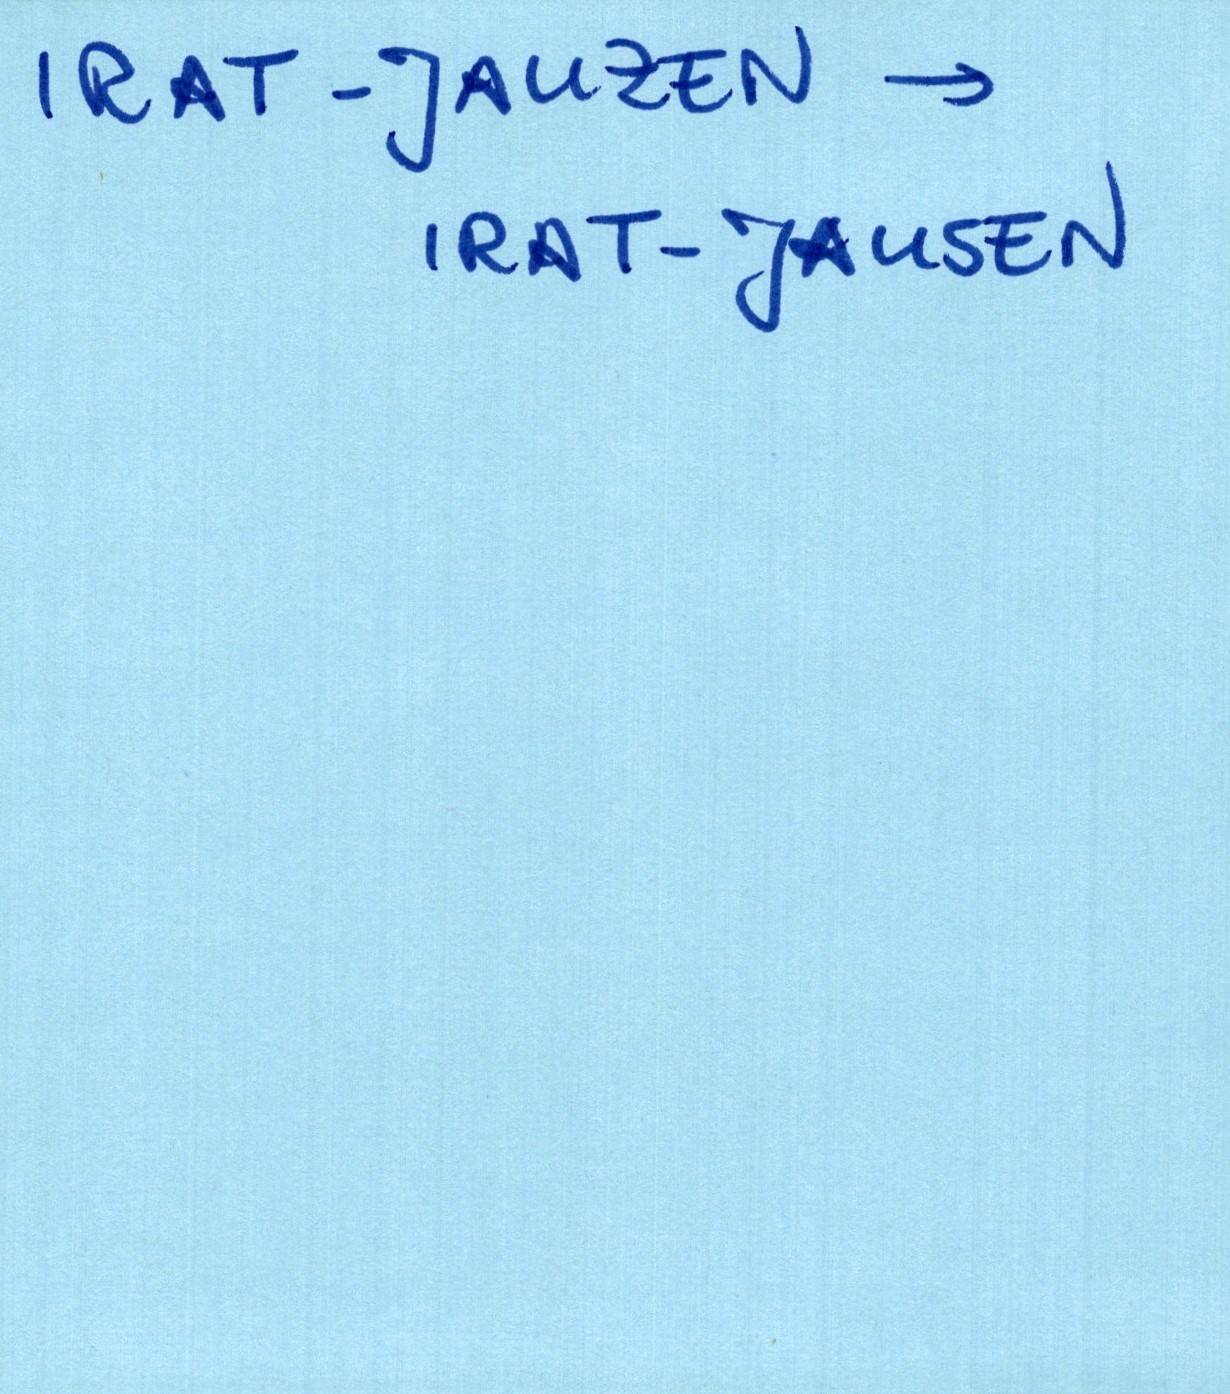 IRAT-JAUZEN →
IRAT-JAUSEN